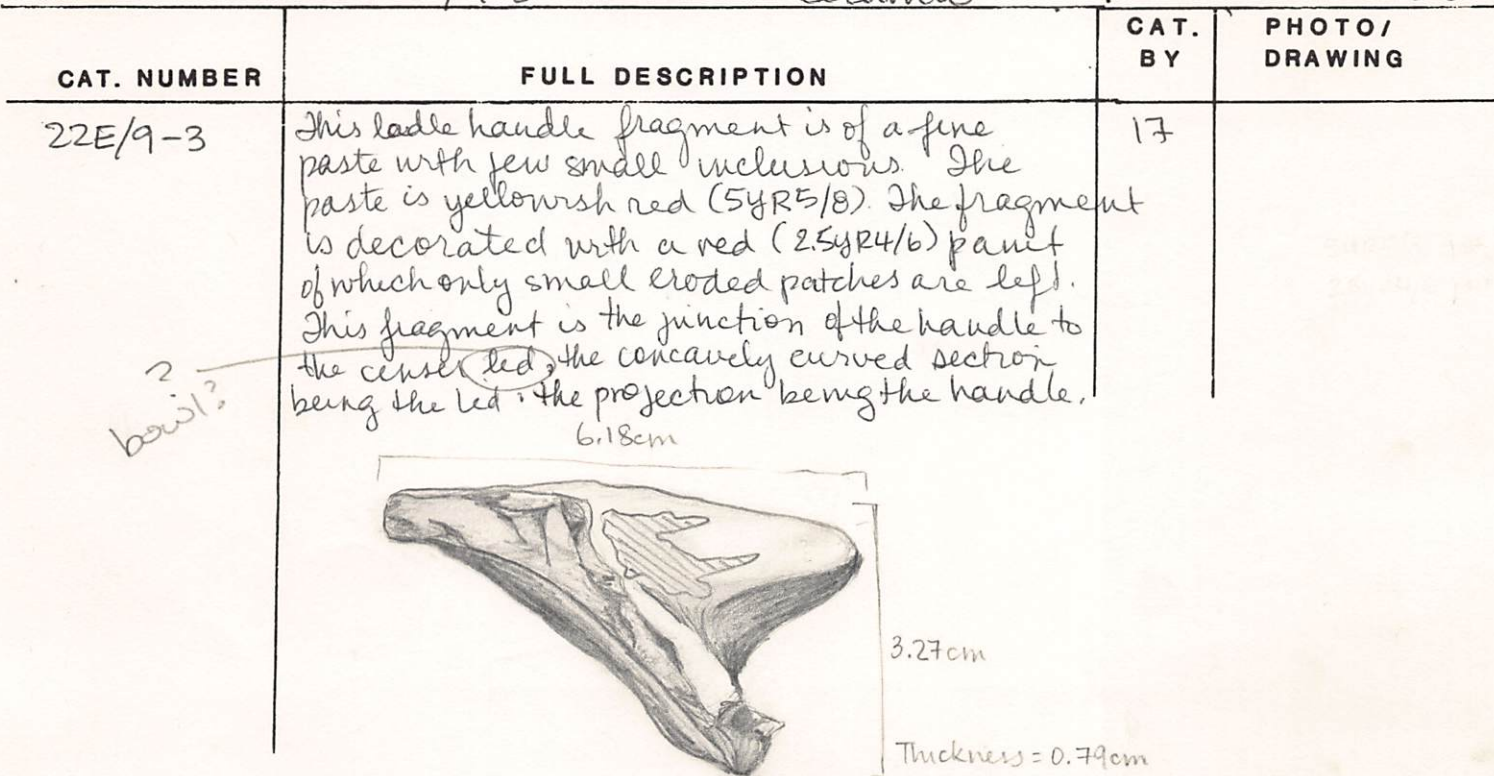 CAT. NUMBER
FULL DESCRIPTION
CAT. BY
PHOTO/ DRAWING
22E/9-3
This ladle handle fragment is of a fine
paste with few small inclusions. The
paste is yellowish red (5YR5/8). The fragment
is decorated with a red (2.5YR4/6) paint
of which only small eroded patches are left.
This fragment is the junction of the handle to
the censer led, the concavely curved section
being the led; the projection being the handle.
17
?
bowl?
6.18cm
3.27cm
Thickness = 0.79cm